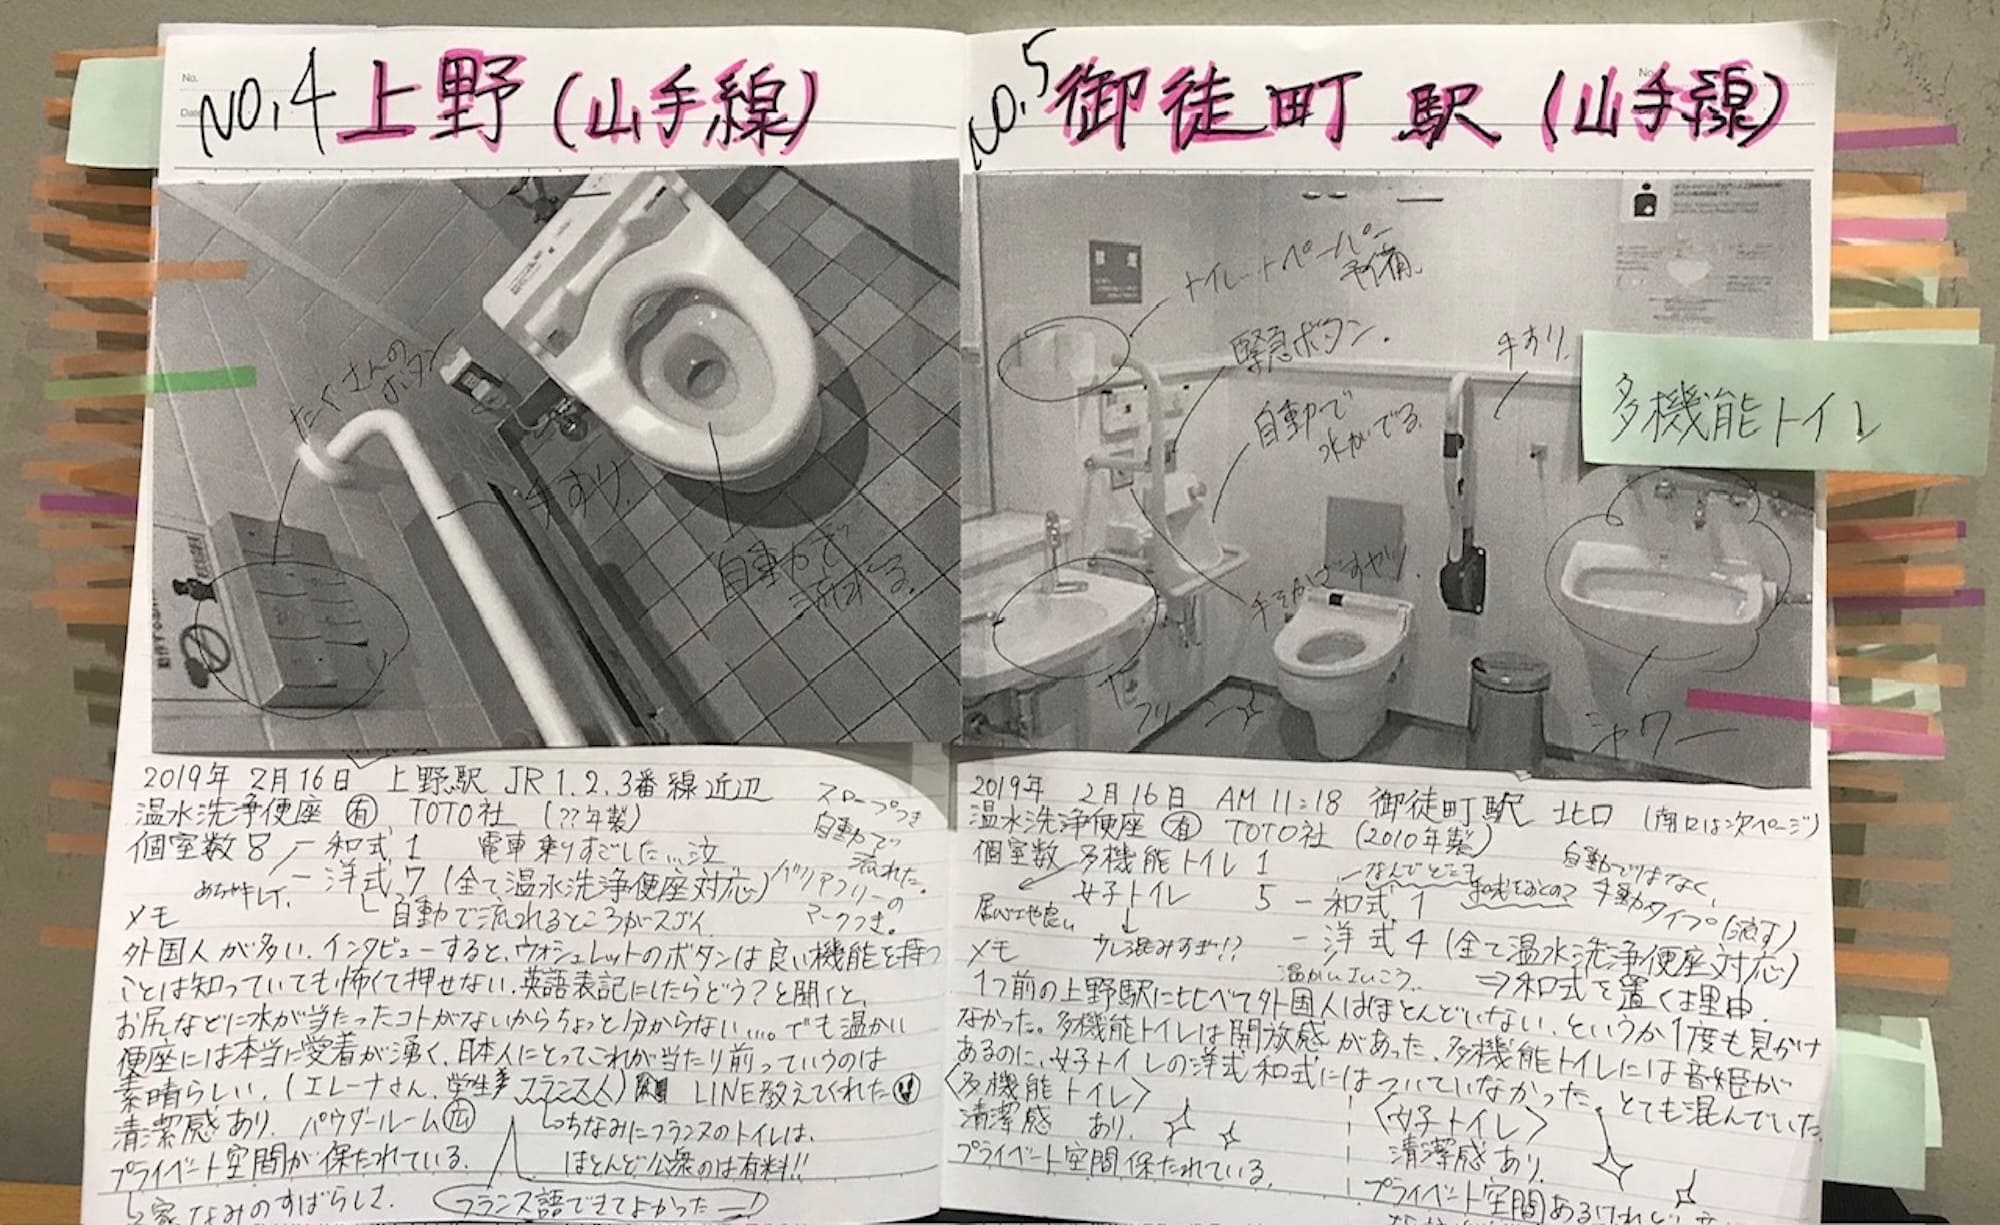 No.4 上野(山手線)
たくさんのボタン
手すり.
自動で流水でる.
2019年 2月16日 上野駅 JR 1.2.3番線近辺
温水洗浄便座 有 TOTO社 (??年製)
個室数8 和式 1 電車乗りすごした...泣
洋式 7 (全て温水洗浄便座対応)
自動で流れるところがスゴイ.
めちゃキレイ.
スロープつき
自動で流れた。
バリアフリーのマークつき。
メモ
外国人が多い.インタビューすると、ウォシュレットのボタンは良い機能を持つ
ことは知っていても怖くて押せない.英語表記にしたらどう?と聞くと、
お尻などに水が当たったコトがないからちょっと分からない...。でも温かい
便座には本当に愛着が湧く.日本人にとってこれが当たり前っていうのは
素晴らしい.(エレーナさん.学生 フランス人) LINE教えてくれた
清潔感あり. パウダールーム 広
ちなみにフランスのトイレは、
ほとんど公衆のは有料!!
プライベート空間が保たれている.
家なみのすばらしさ.
フランス語できてよかったー!
No.5 御徒町駅(山手線)
トイレットペーパー予備.
緊急ボタン.
手すり.
自動で水がでる.
多機能トイレ
手をかざすヤツ.
シャワー
2019年 2月16日 AM 11:18 御徒町駅 北口 (南口は次ページ)
温水洗浄便座 有 TOTO社 (2010年製)
個室数 多機能トイレ 1
女子トイレ 5 - 和式 1
- 洋式 4 (全て温水洗浄便座対応)
自動ではなく、
手動タイプ(流す)
居心地良い
少し混みすぎ!?
⇒和式を置く理由.
メモ
1つ前の上野駅に比べて外国人はほとんどいない.というか1度も見かけ
なかった。多機能トイレは開放感があった.多機能トイレには音姫が
あるのに、女子トイレの洋式和式にはついていなかった.とても混んでいた.
〈多機能トイレ〉
清潔感 あり.
プライベート空間保たれている.
〈女子トイレ〉
清潔感あり.
プライベート空間あるけれど